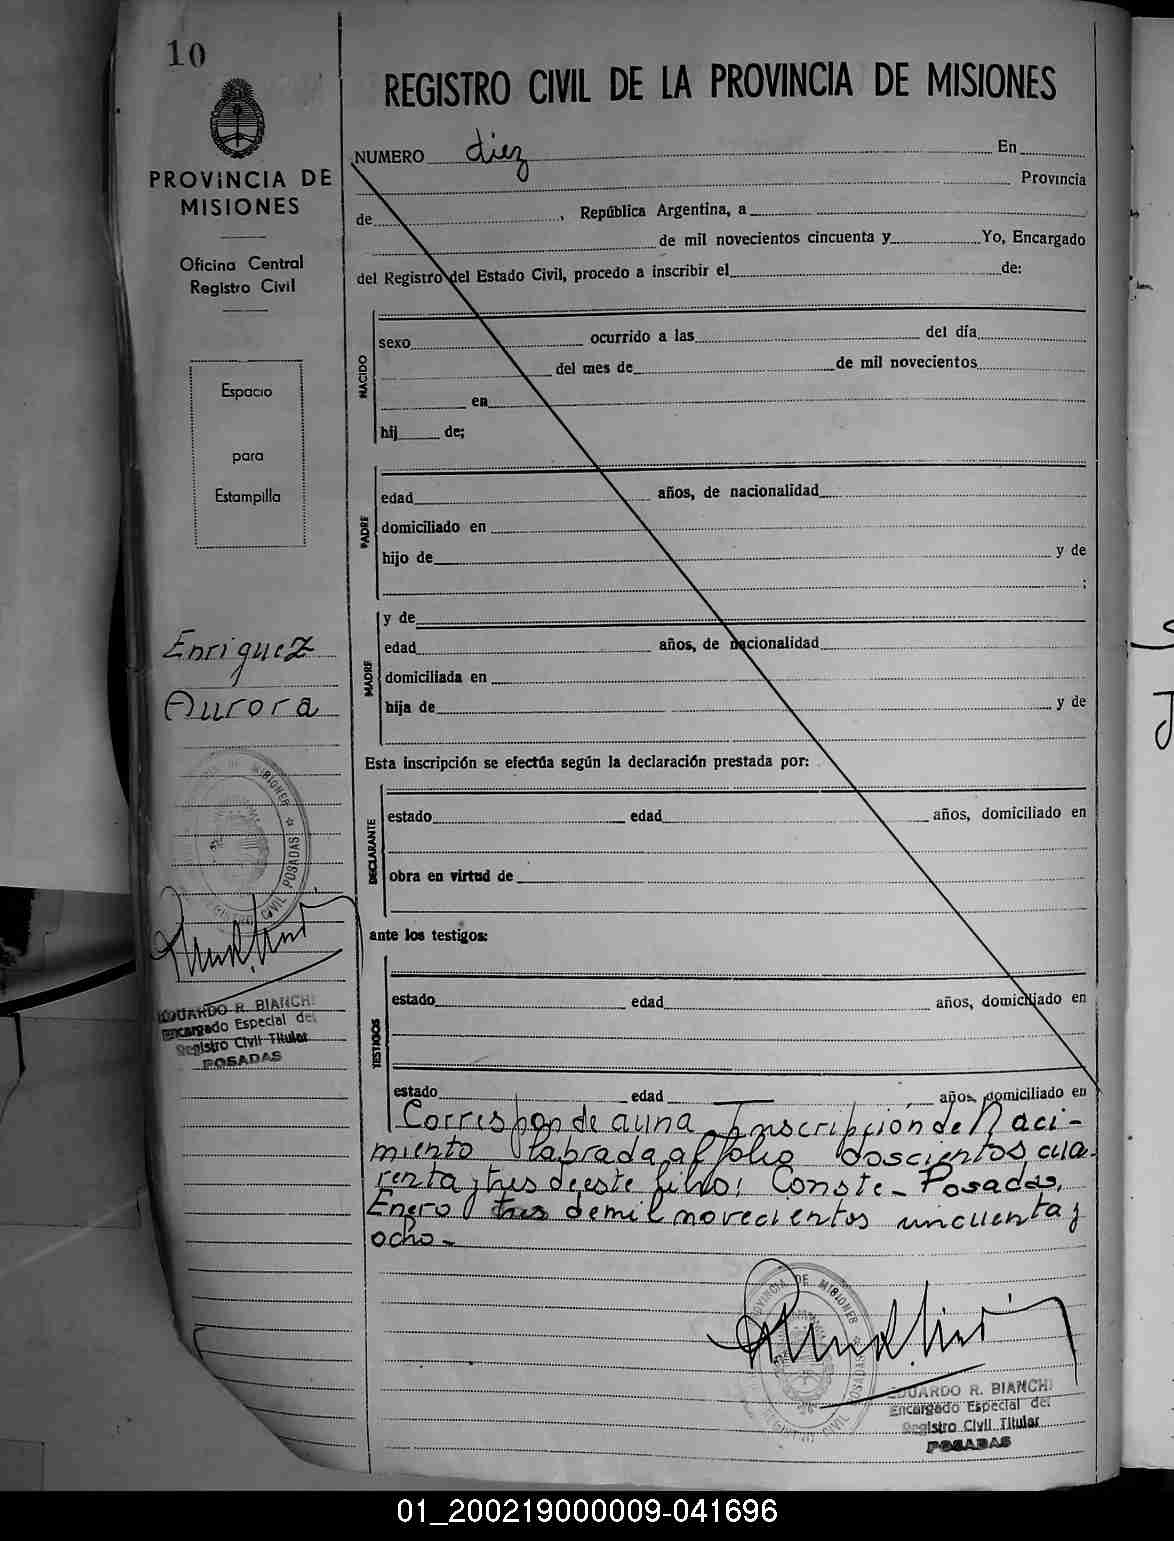 10
PROVINCIA DE
MISIONES
Oficina Central
Registro Civil
Espacio
para
Estampilla
Enriquez
Aurora
EDUARDO R. BIANCHI
Encargado Especial del
Registro Civil Titular
POSADAS
REGISTRO CIVIL DE LA PROVINCIA DE MISIONES
NUMERO diez En
Provincia
de , República Argentina, a
de mil novecientos cincuenta y Yo, Encargado
del Registro del Estado Civil, procedo a inscribir el de:
NACIDO
sexo ocurrido a las del día
del mes de de mil novecientos
en
hij de;
PADRE
edad años, de nacionalidad
domiciliado en
hijo de y de
;
MADRE
y de
edad años, de nacionalidad
domiciliada en
hija de y de
Esta inscripción se efectúa según la declaración prestada por:
DECLARANTE
estado edad años, domiciliado en
obra en virtud de
ante los testigos:
TESTIGOS
estado edad años, domiciliado en
estado edad años, domiciliado en
Corresponde a una Inscripción de Naci-
miento labrada al folio doscientos cua-
renta y tres de este libro; Conste_ Posadas,
Enero tres de mil novecientos cincuenta y
ocho_
PROVINCIA DE MISIONES
REGISTRO CIVIL POSADAS
EDUARDO R. BIANCHI
Encargado Especial del
Registro Civil Titular
POSADAS
01_200219000009-041696